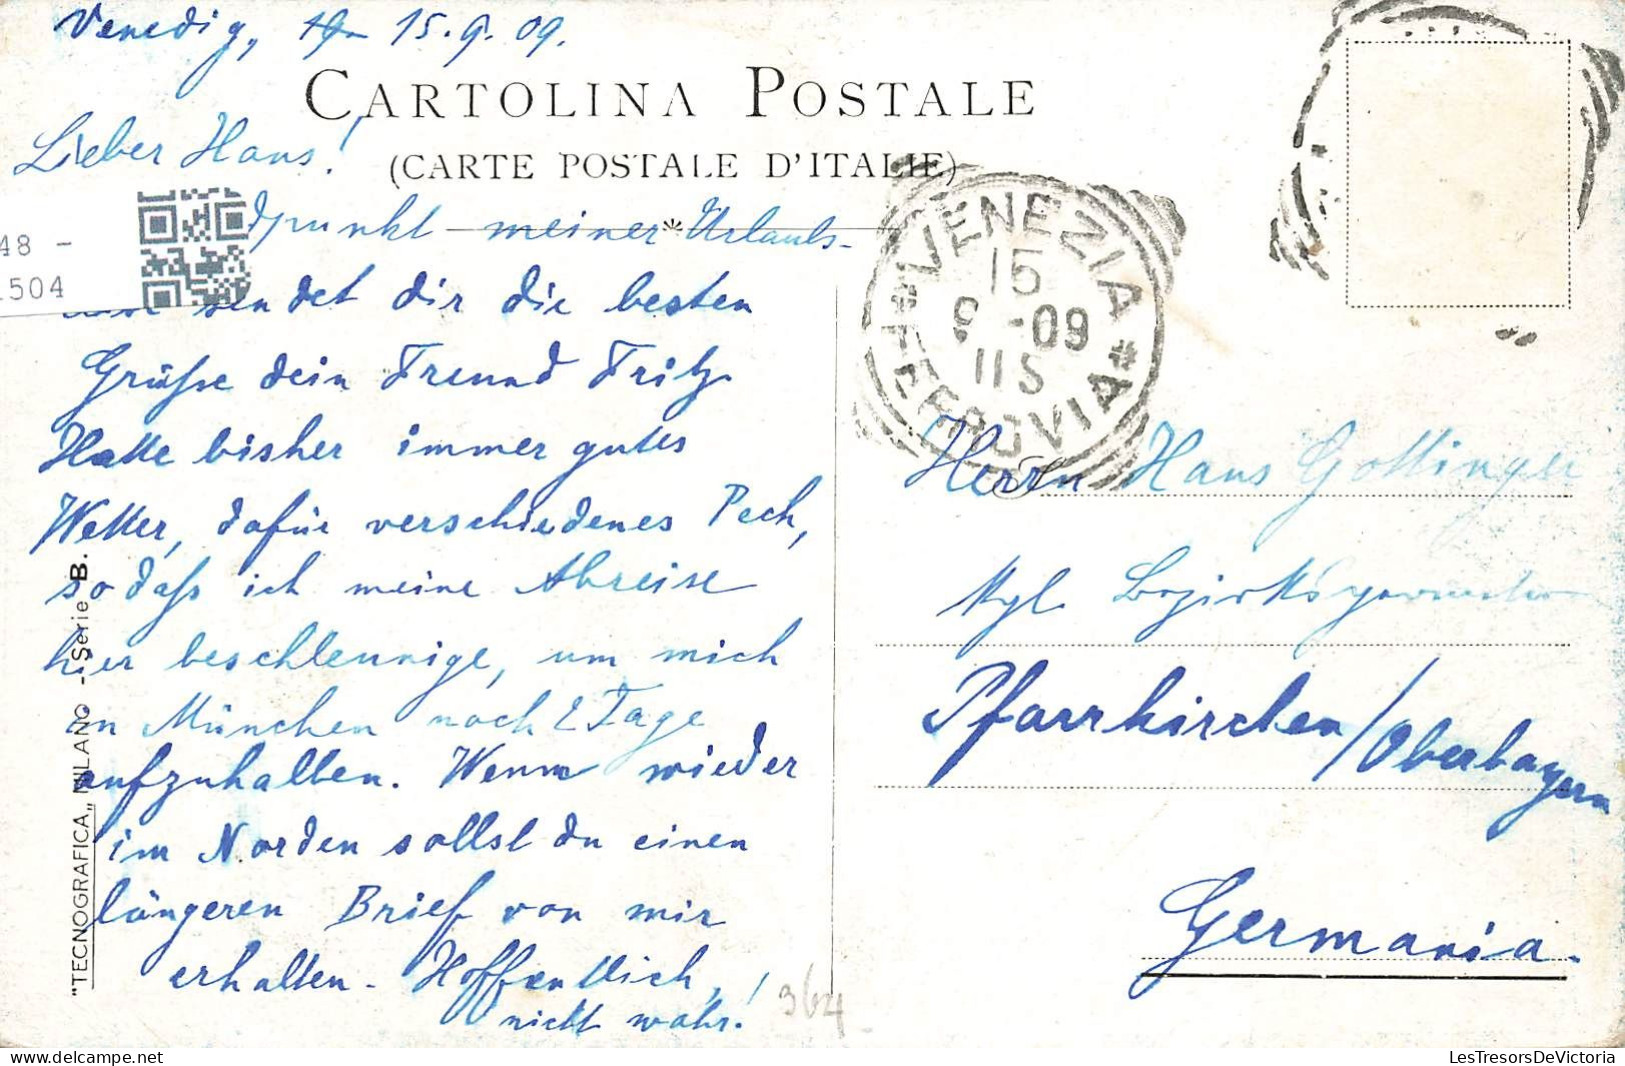 Venedig, 15.9.09.
CARTOLINA POSTALE
(CARTE POSTALE D'ITALIE)
Lieber Hans!
dpunkt meiner Urlaubs-
sendet dir die besten
Grüße dein Freund Fritz
Hatte bisher immer gutes
Wetter, dafür verschiedenes Pech,
so daß ich meine Abreise
hier beschleunige, um mich
in München noch 2 Tage
aufzuhalten. Wenn wieder
im Norden sollst du einen
längeren Brief von mir
erhalten. Hoffentlich,
nicht wahr!
48 -
1504
"TECNOGRAFICA„ MILANO - Serie B.
VENEZIA
15
9 -09
11S
* FERROVIA *
Herrn Hans Gottinger
Kgl. Bezirksgeometer
Pfarrkirchen/Oberbayern
Germania.
364
LesTresorsDeVictoria